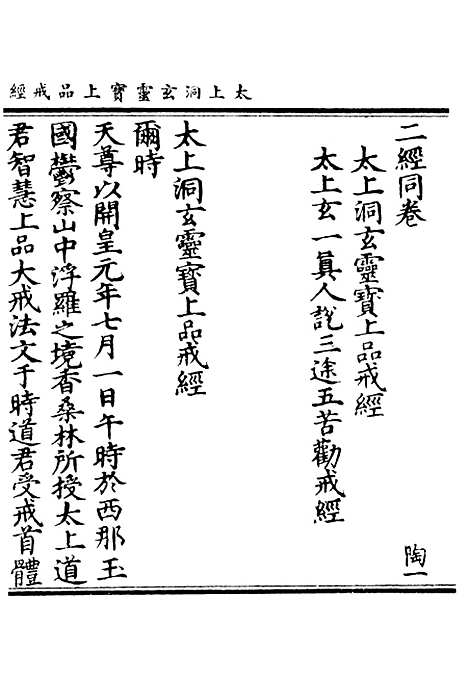 太上洞玄靈寶上品戒經
二經同卷
陶一
太上洞玄靈寶上品戒經
太上玄一真人說三途五苦勸戒經
太上洞玄靈寶上品戒經
爾時
天尊以開皇元年七月一日午時於西那玉
國欎察山中浮羅之境香桑林所授太上道
君智慧上品大戒法文于時道君受戒首體